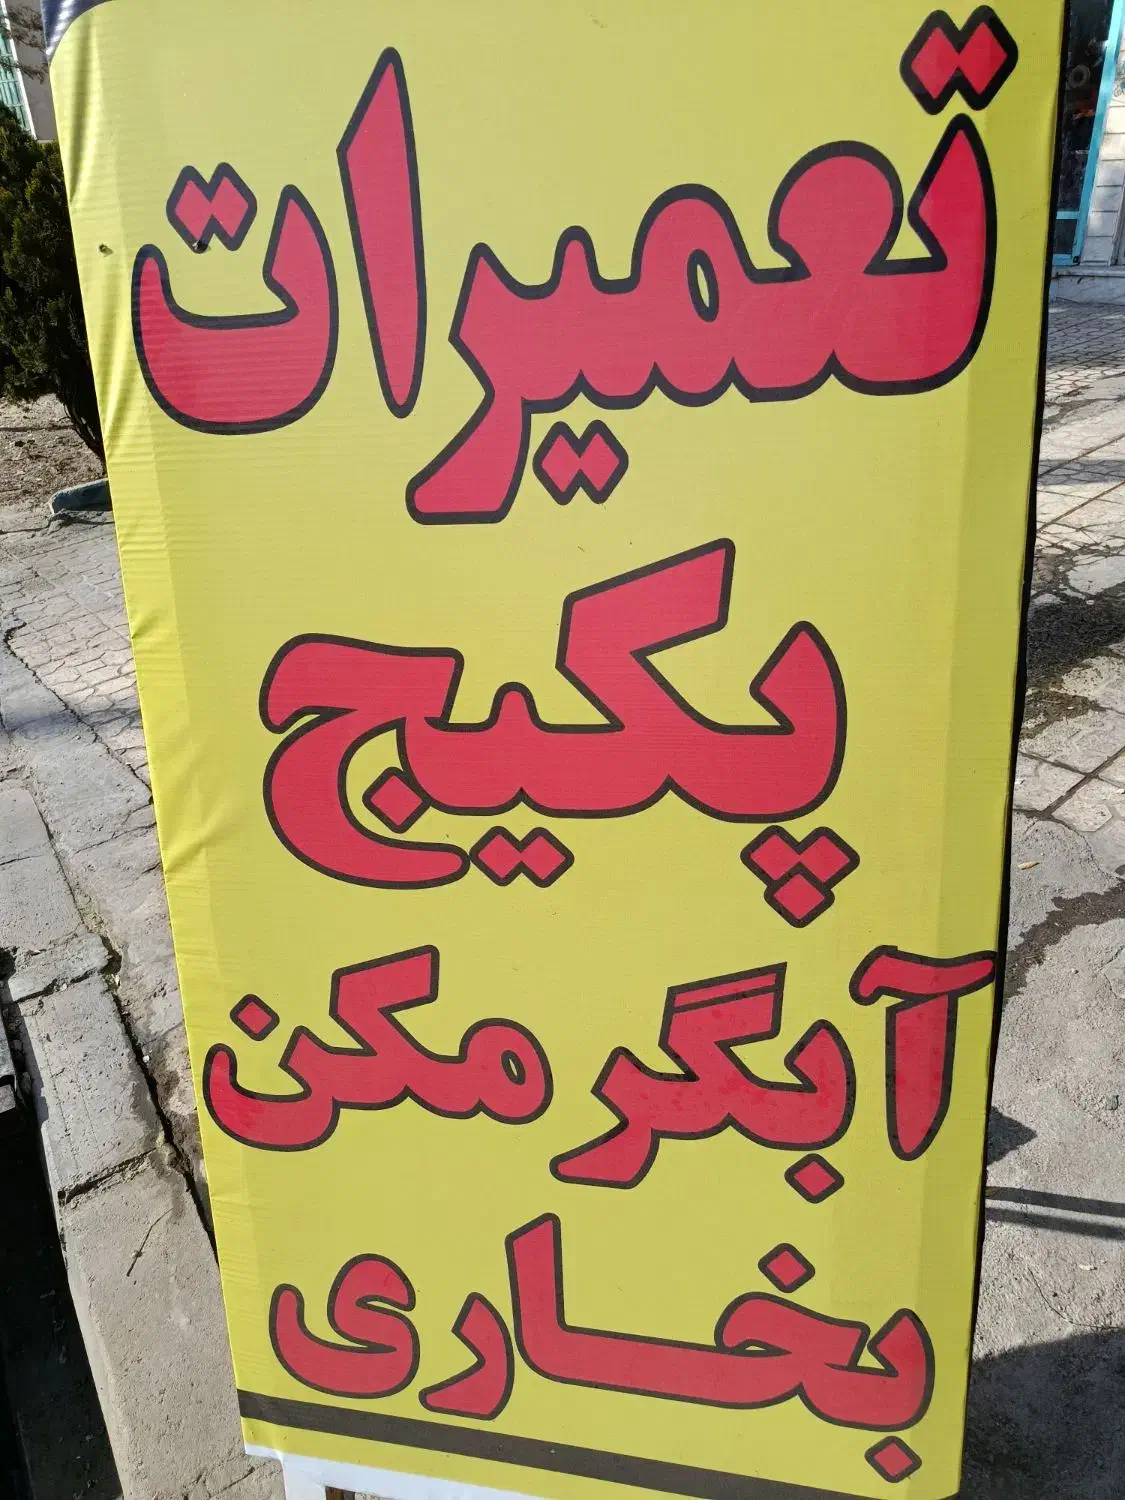 تعمیرات
پکیج
آبگر مکن
بخاری